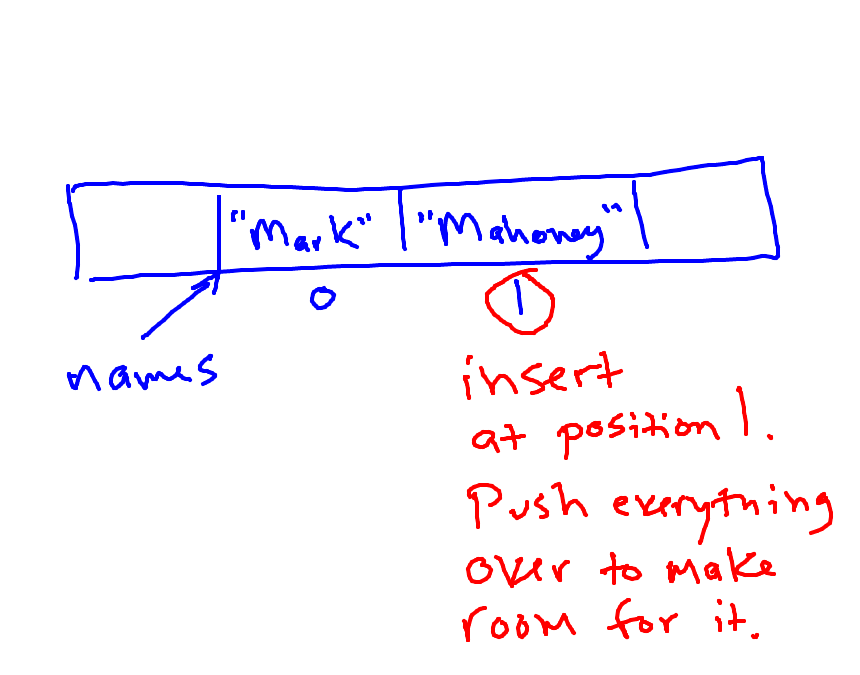 "Mark" "Mahoney"
0 1
names
insert
at position 1.
Push everything
over to make
room for it.